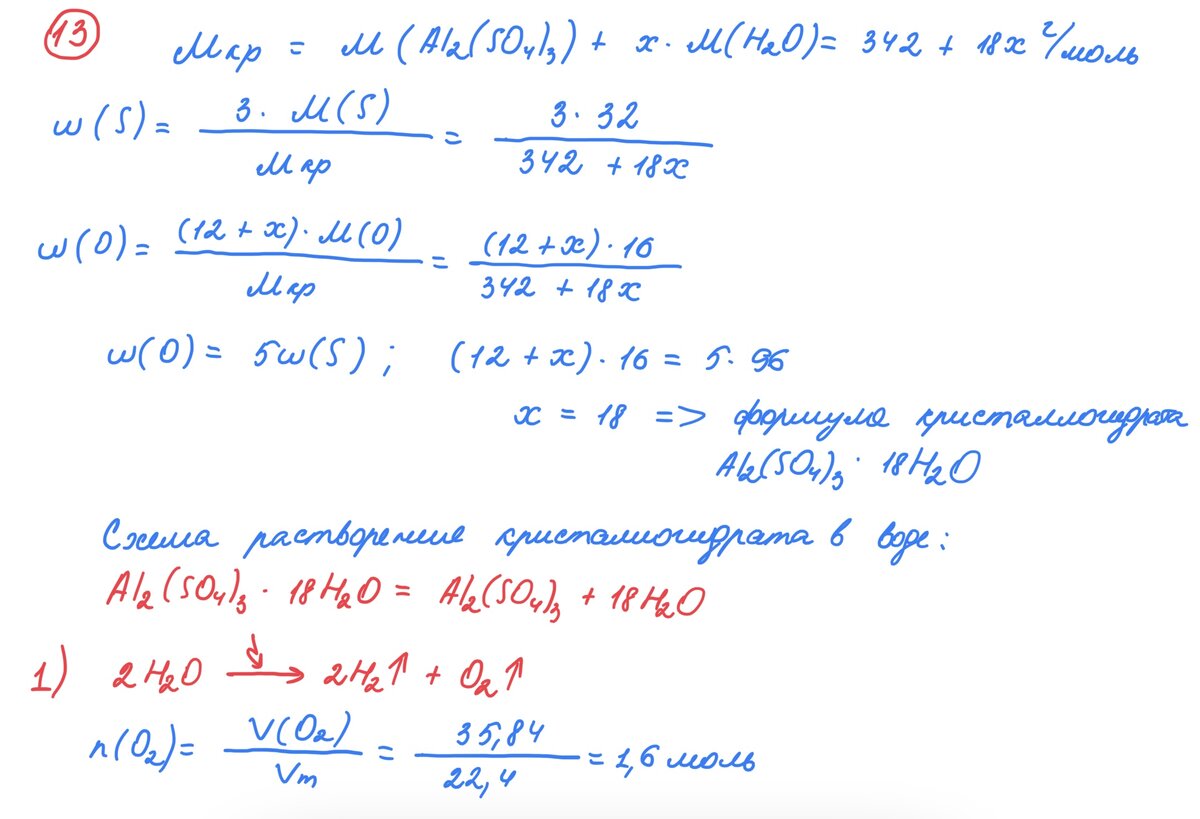 13 Mкр = M(Al₂(SO₄)₃) + x · M(H₂O) = 342 + 18x г/моль
w(S) = 3 · M(S) / Mкр = 3 · 32 / 342 + 18x
w(O) = (12 + x) · M(O) / Mкр = (12 + x) · 16 / 342 + 18x
w(O) = 5w(S) ; (12 + x) · 16 = 5 · 96
x = 18 => формула кристаллогидрата
Al₂(SO₄)₃ · 18H₂O
Схема растворение кристаллогидрата в воде:
Al₂(SO₄)₃ · 18H₂O = Al₂(SO₄)₃ + 18H₂O
1) 2H₂O → 2H₂↑ + O₂↑
n(O₂) = V(O₂) / Vm = 35,84 / 22,4 = 1,6 моль